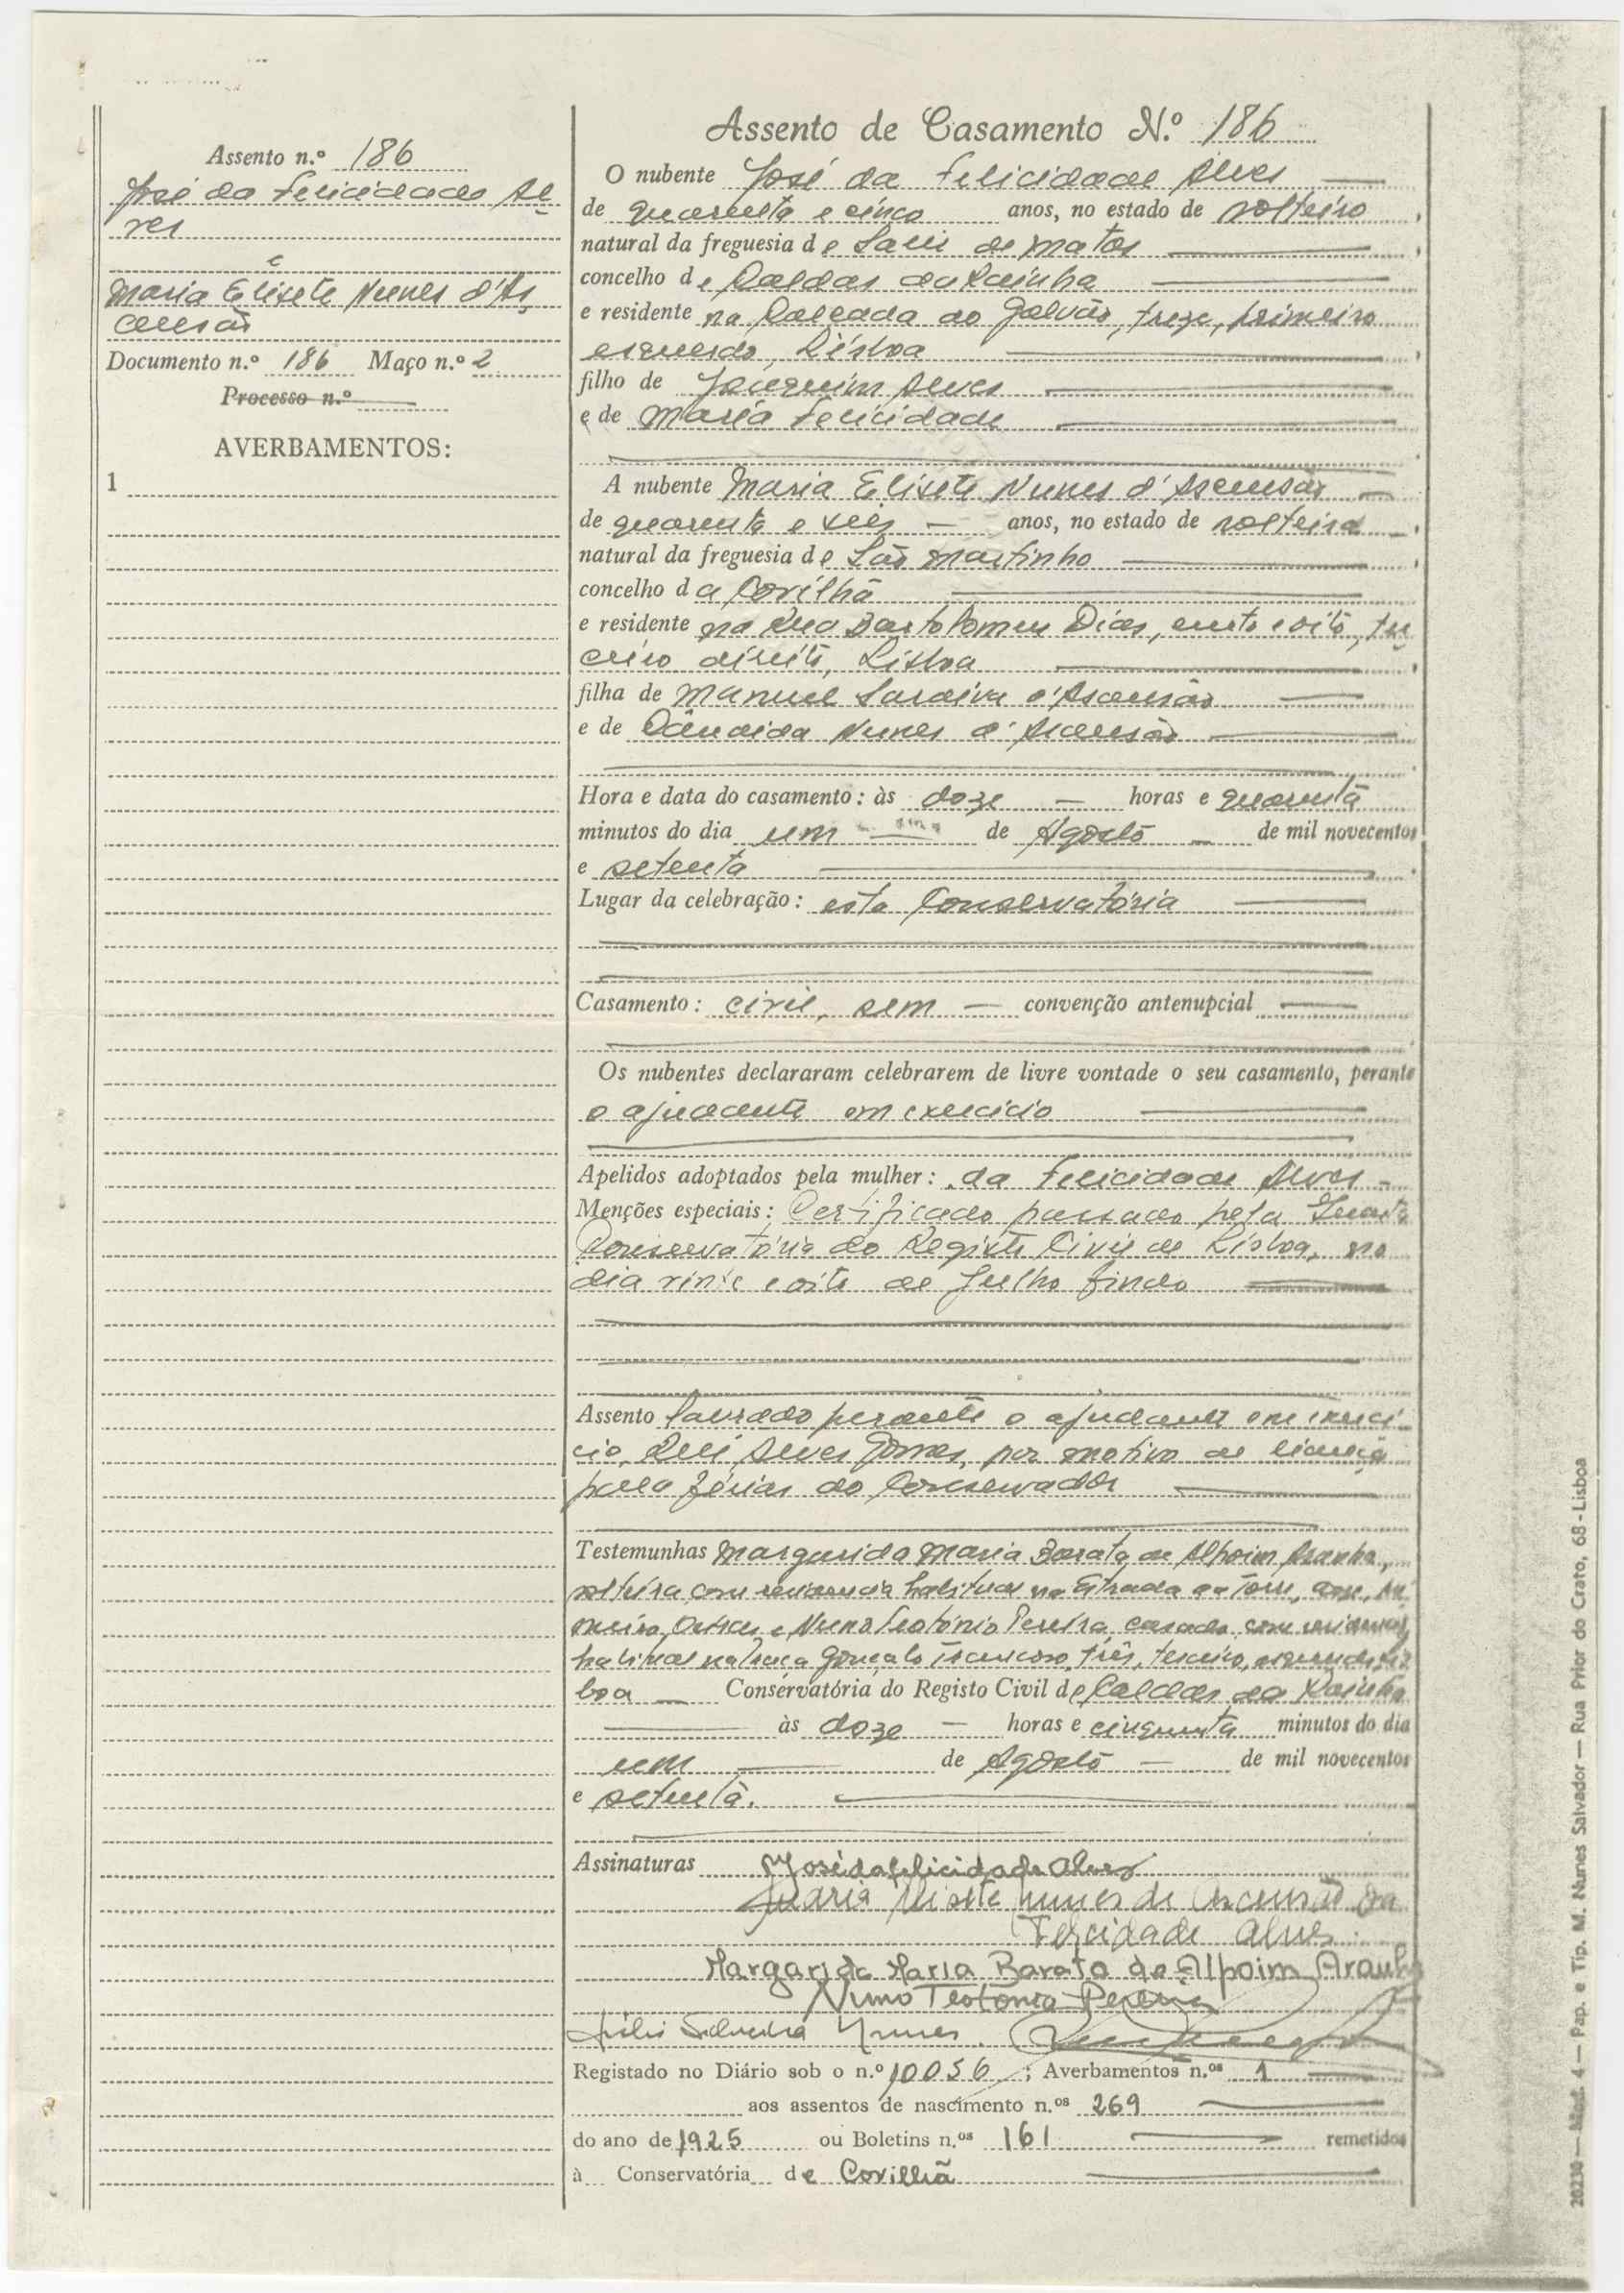 Assento n.º 186
José da Felicidade Al
ves
e
Maria Elisete Nunes d'As
censão
Documento n.º 186 Maço n.º 2
Processo n.º
AVERBAMENTOS:
1
Assento de Casamento N.º 186
O nubente José da Felicidade Alves
de quarenta e cinco anos, no estado de solteiro,
natural da freguesia de Salir de Matos,
concelho de Caldas da Rainha
e residente na Calçada do Galvão, treze, primeiro
esquerdo, Lisboa,
filho de Joaquim Alves
e de Maria Felicidade
A nubente Maria Elisete Nunes d'Ascensão
de quarenta e seis anos, no estado de solteira,
natural da freguesia de São Martinho,
concelho da Covilhã
e residente na Rua Bartolomeu Dias, cento e oito, ter
ceiro direito, Lisboa,
filha de Manuel Saraiva d'Ascensão
e de Cândida Nunes d'Ascensão
Hora e data do casamento: às doze horas e quarenta
minutos do dia um de Agosto de mil novecentos
e setenta.
Lugar da celebração: esta Conservatória
Casamento: civil, sem convenção antenupcial
Os nubentes declararam celebrarem de livre vontade o seu casamento, perante
o ajudante em exercício
Apelidos adoptados pela mulher: da Felicidade Alves
Menções especiais: Certificado passado pela Quarta
Conservatória do Registo Civil de Lisboa, no
dia vinte e oito de Julho findo
Assento lavrado perante o ajudante em exercí
cio, Rui Alves Gomes, por motivo de licença
para férias do Conservador
Testemunhas Margarida Maria Barata de Alpoim Aranha,
solteira, com residência habitual na Estrada da Torre, doze, pri
meiro, e Nuno Teotónio Pereira, casado, com residência
habitual na Praça Gonçalo Trancoso, três, terceiro, esquerdo, Lis
boa Conservatória do Registo Civil de Caldas da Rainha
às doze horas e cinquenta minutos do dia
um de Agosto de mil novecentos
e setenta.
Assinaturas José da Felicidade Alves
Maria Elisete Nunes de Ascensão da
Felicidade Alves
Margarida Maria Barata de Alpoim Aranha
Nuno Teotónio Pereira
Júlio Nunes.
Registado no Diário sob o n.º 10056; Averbamentos n.os 1
aos assentos de nascimento n.os 269
do ano de 1925 ou Boletins n.os 161 remetidos
à Conservatória de Covilhã
20230 — Mod. 4 — Pap. e Tip. M. Nunes Salvador — Rua Prior do Crato, 68 - Lisboa